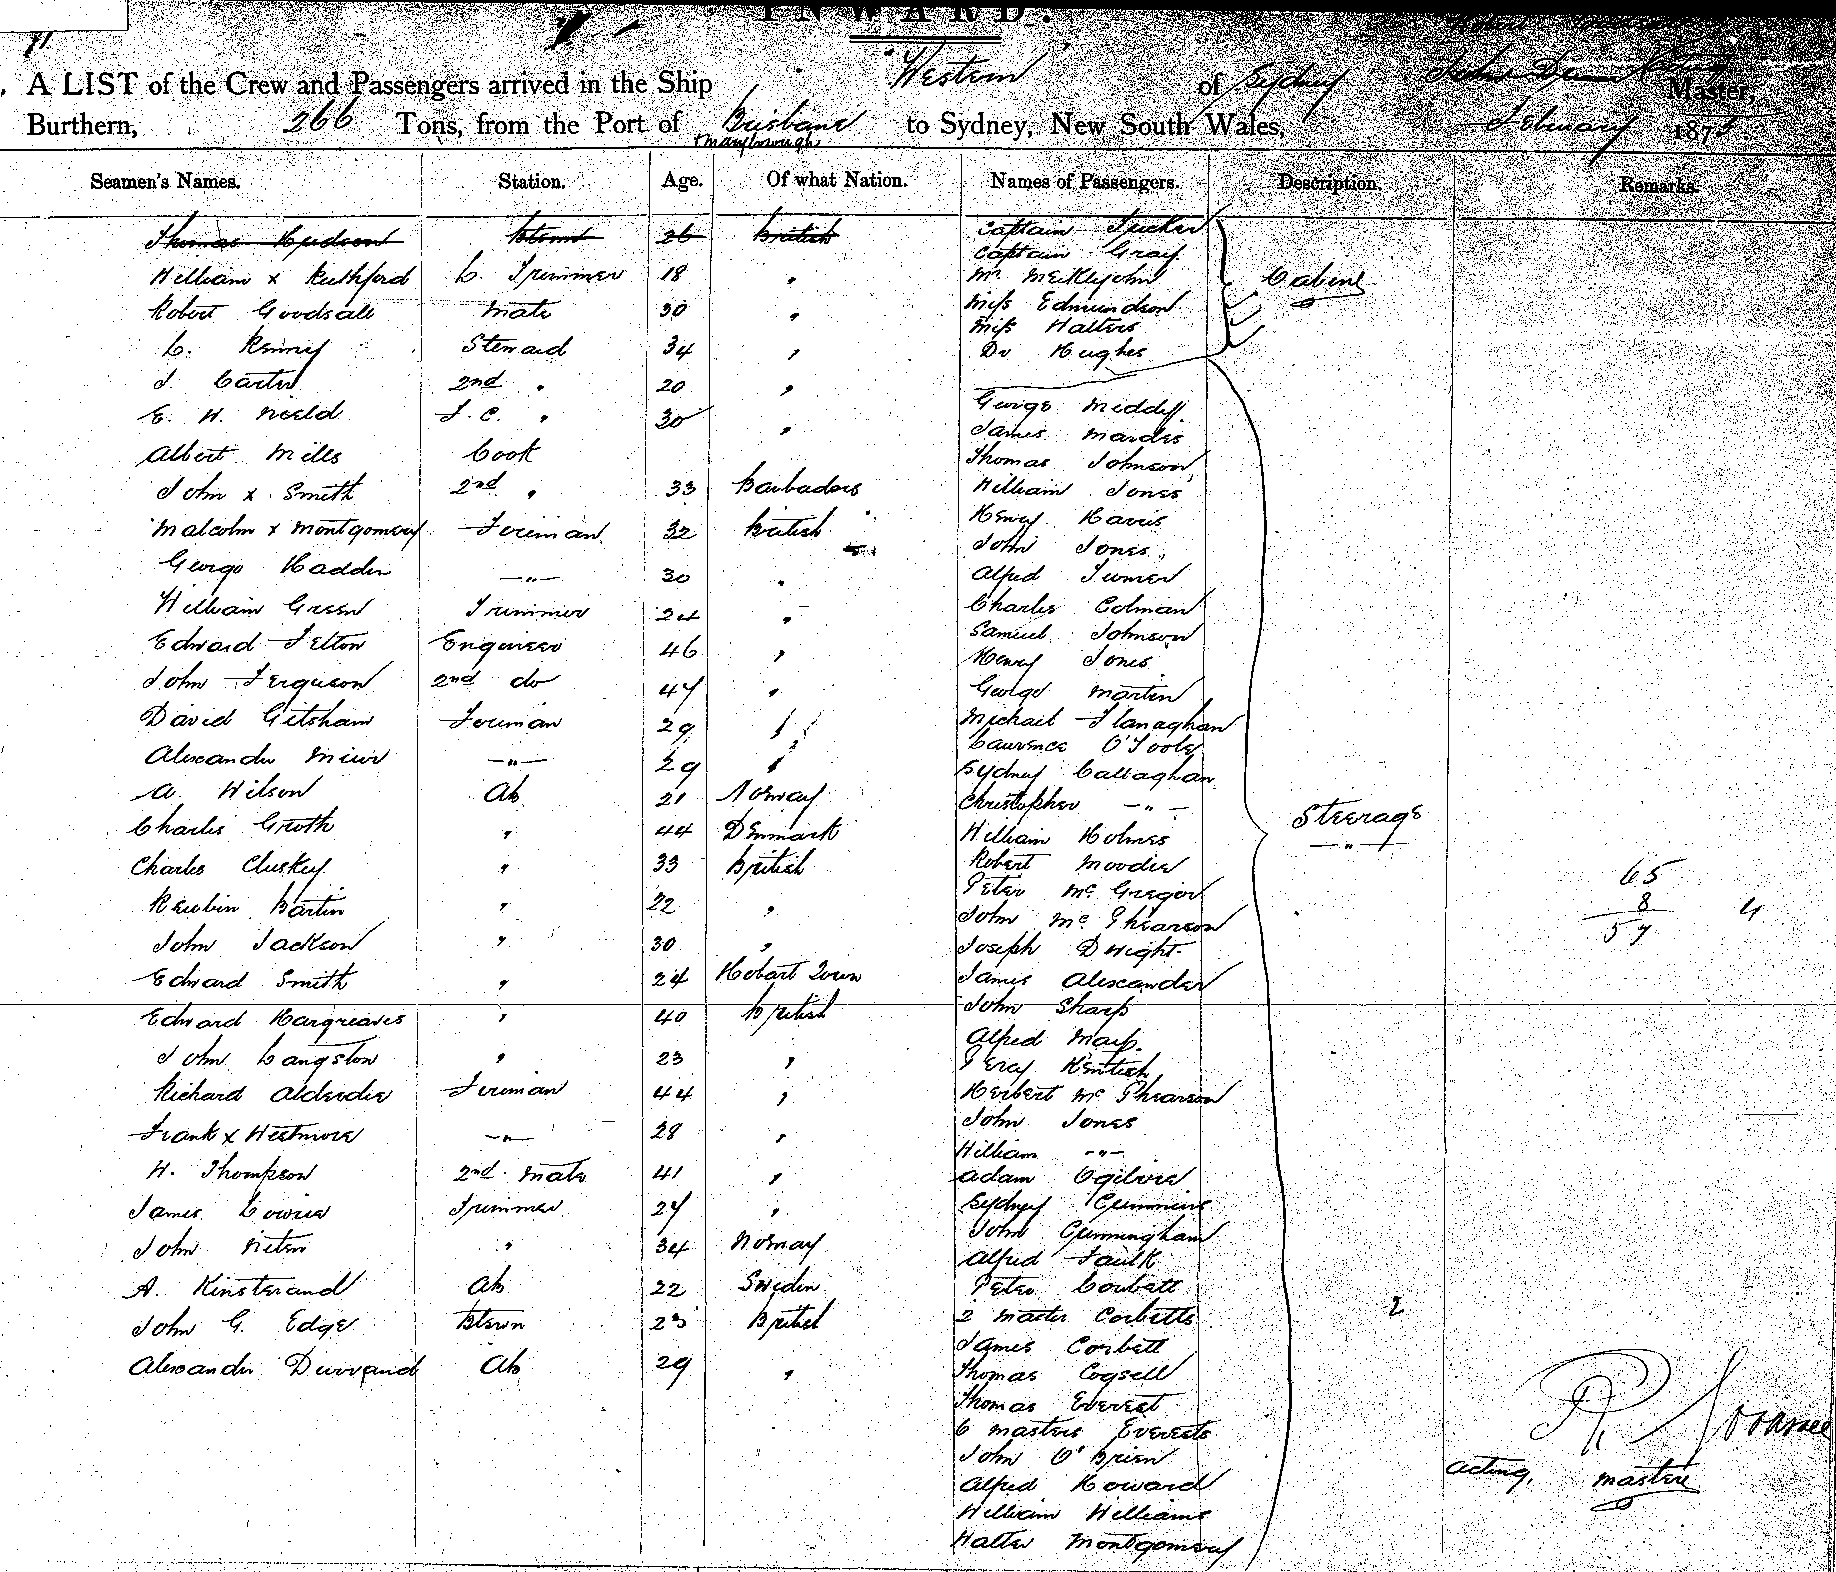 INWARD.
71
A LIST of the Crew and Passengers arrived in the Ship Western of Sydney Master,
Burthern, 266 Tons, from the Port of Brisbane to Sydney, New South Wales, February 187
(Maryborough)
Seamen's Names. Station. Age. Of what Nation. Names of Passengers. Description. Remarks.
Thomas Hudson 26 British Captain Tucker
Captain Gray
William x Ruthford C. Trimmer 18 " Mr Meiklejohn Cabins
Robert Goodsall Mate 30 " Miss Edmundson
Miss Walters
C. Kenny Steward 34 " Dr Hughes
J. Carter 2nd " 20 "
E. W. Neeld F. C. " 30 " George
James
Albert Mills Cook Thomas Johnson
John x Smith 2nd " 33 Barbadoes William Jones
Malcolm x Montgomery Fireman 32 British Henry
John Jones
George Hadden —"— 30 " Alfred Turner
William Green Trimmer 24 " Charles Colman
Edward Felton Engineer 46 " Samuel Johnson
Henry Jones
John Ferguson 2nd do 47 " George Martin
David Gitsham Fireman 29 " Michael Flanaghan
Laurence O'Toole
Alexander Muir —"— 29 " Sydney Callaghan
A. Wilson Ab 21 Norway Christopher —"—
Charles Groth " 44 Denmark William Holmes Steerage
—"—
Charles Cluskey " 33 British Robert Moodie 65
Peter McGregor 8 4
Reubin Bartin " 22 " John McPhearson 57
John Jackson " 30 " Joseph Dwight
Edward Smith " 24 Hobart Town James Alexander
John Sharp
Edward Hargreaves " 40 British Alfred Mays
John Langston " 23 " Percy Kentish
Richard Alderdie Fireman 44 " Herbert McPhearson
John Jones
Frank x Westmore —"— 28 " William —"—
W. Thompson 2nd Mate 41 " Adam Ogilvie
James Lowrie Trimmer 27 " Sydney Cummins
John " 34 Norway John Cunningham
Alfred Faulk
A. Kinstrand Ab 22 Sweden Peter Corbett
John G. Edge 23 British 2 Master Corbetts 2
James Corbett
Alexander Durrand Ab 29 " Thomas Cogsell
Thomas Everest
6 masters Everests
John O'Brien
Alfred Howard Acting, master
William Williams
Walter Montgomery